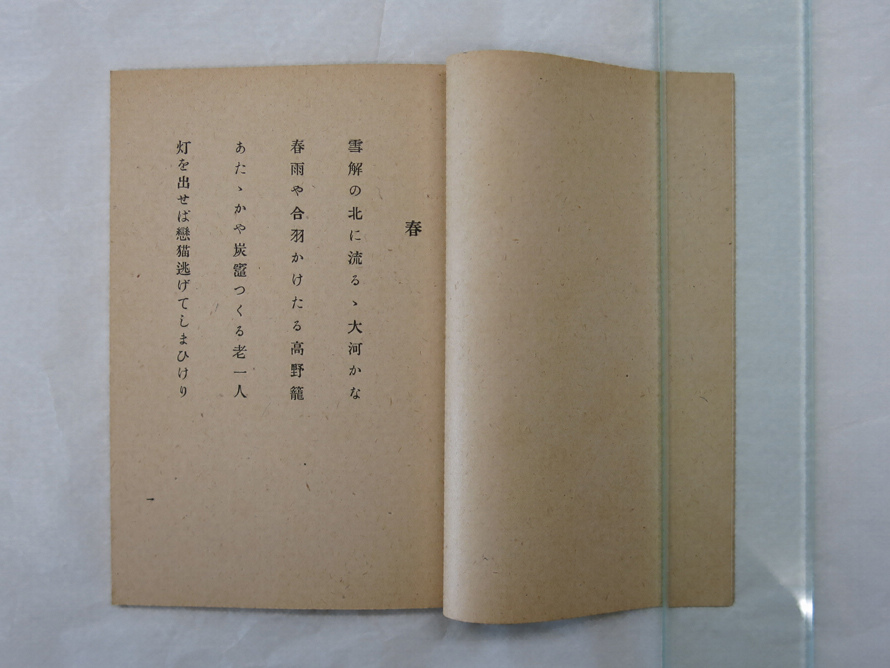 春
雪解の北に流るゝ大河かな
春雨や合羽かけたる高野籠
あたゝかや炭竈つくる老一人
灯を出せば戀猫逃げてしまひけり
一